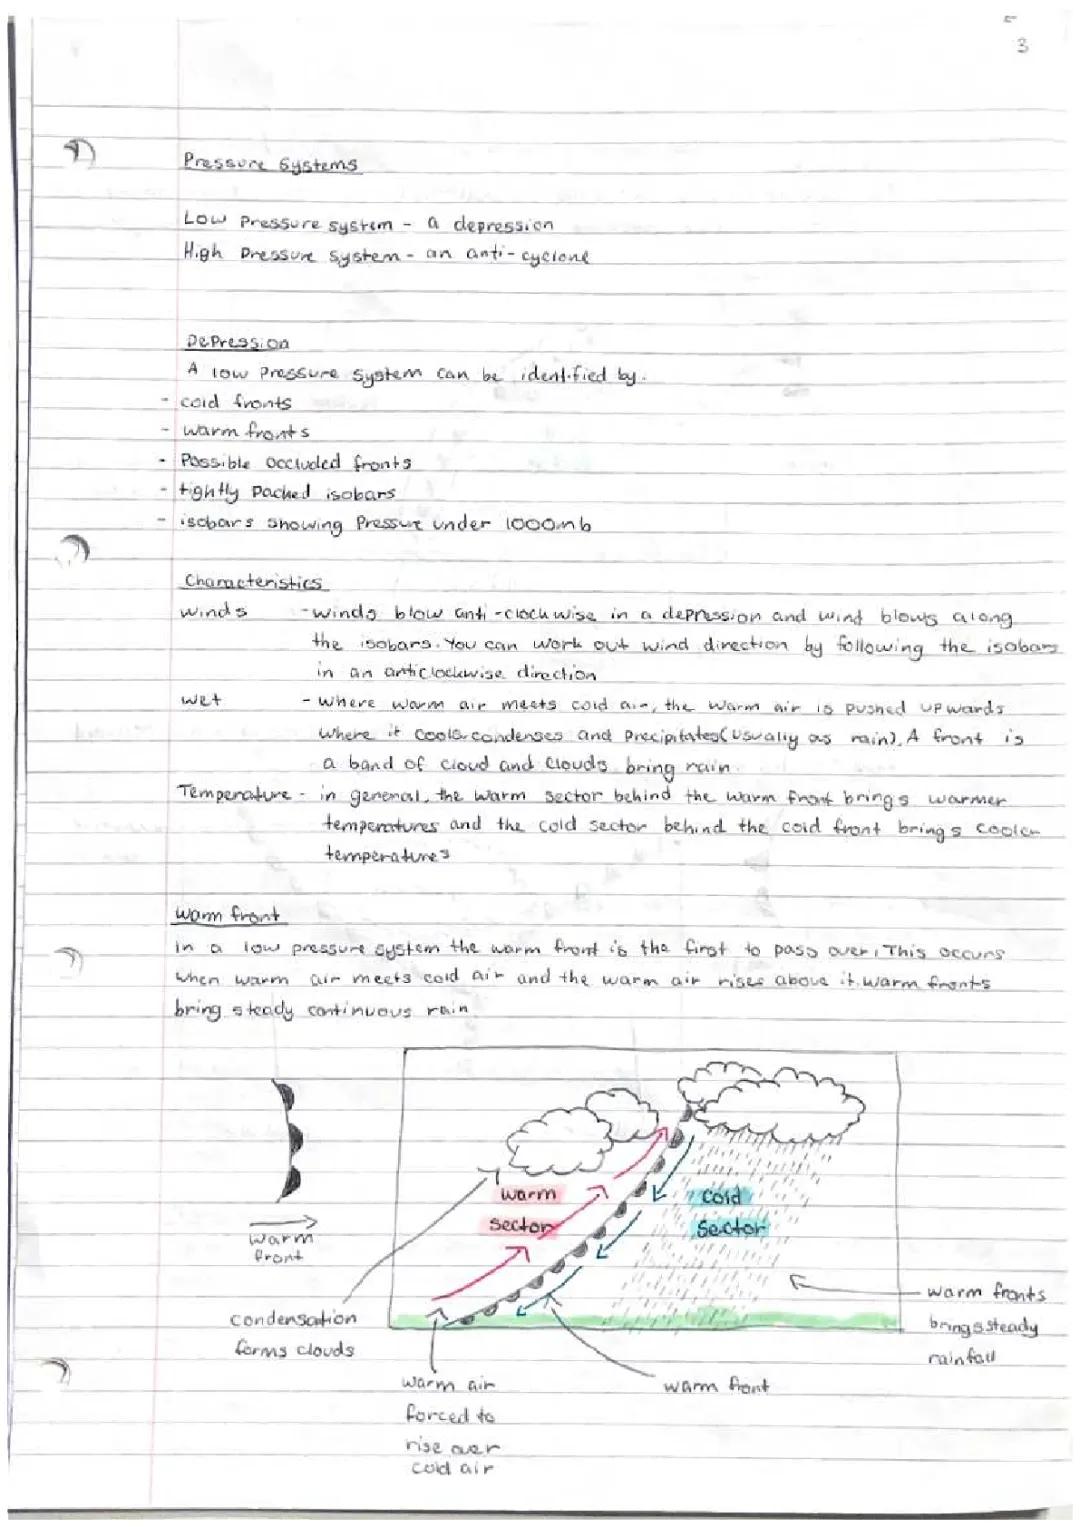 3
Pressure Systems
Low Pressure system - a depression
High Pressure System - an anti-cyclone
Depression
A low Pressure system can be identified by.
- cold fronts
- warm fronts
- Possible occluded fronts
- tightly Packed isobars
- isobars showing Pressure under 1000mb
Characteristics
winds - winds blow anti-clockwise in a depression and wind blows along
the isobars. You can work out wind direction by following the isobars
in an anticlockwise direction
wet - where warm air meets cold air, the warm air is pushed upwards
where it cools, condenses and Precipitates (usually as rain). A front is
a band of cloud and clouds bring rain.
Temperature - in general, the warm sector behind the warm front brings warmer
temperatures and the cold sector behind the cold front brings cooler
temperatures
Warm front
in a low pressure system the warm front is the first to pass over. This occurs
when warm air meets cold air and the warm air rises above it. warm fronts
bring steady continuous rain
warm
sector
cold
sector
warm
front
condensation
forms clouds
warm fronts
brings steady
rainfall
warm air
forced to
rise over
cold air
warm front